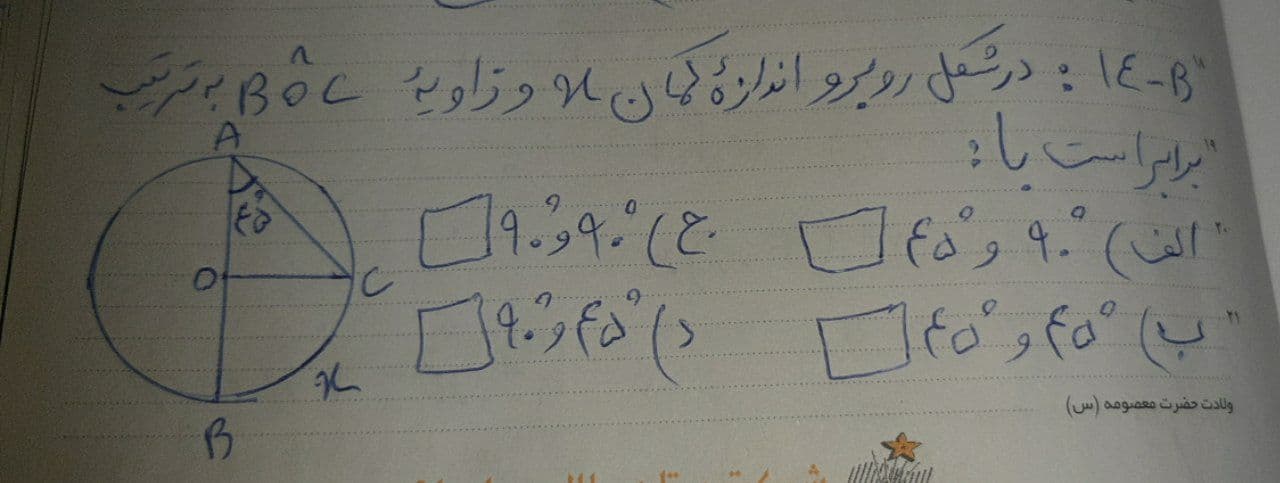 ۱۴-B : در شکل روبرو اندازهٔ کمان x و زاویهٔ BÔC به ترتیب
برابر است با :
الف) ۹۰° و ۴۵°
ج) ۹۰° و ۹۰°
ب) ۴۵° و ۴۵°
د) ۴۵° و ۹۰°
A
۴۵°
O
C
x
B
۱۸
۱۹
۲۰
۲۱
ولادت حضرت معصومه (س)